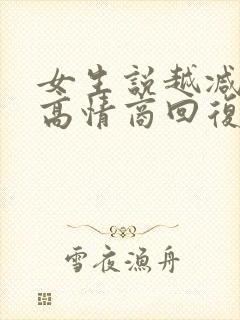 女生説越減
高情商回復
雪夜漁舟